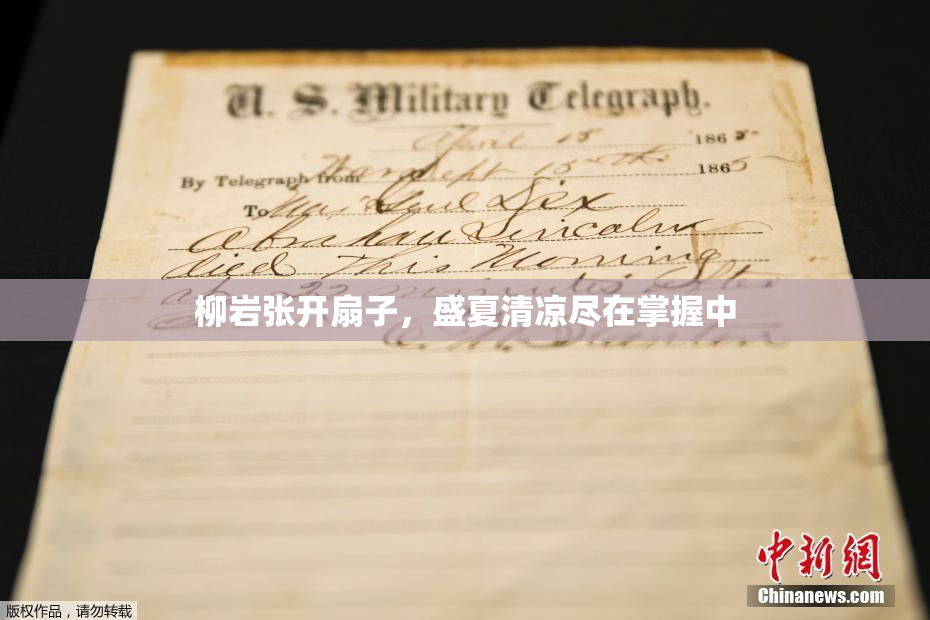 U. S. Military Telegraph.
April 15 1865
By Telegraph from War Dept 15th 1865
To Maj Genl Dix
Abraham Lincoln
died This Morning
at 22 minutes after
柳岩张开扇子，盛夏清凉尽在掌握中
E. M. Stanton
中新网
Chinanews.com
版权作品，请勿转载